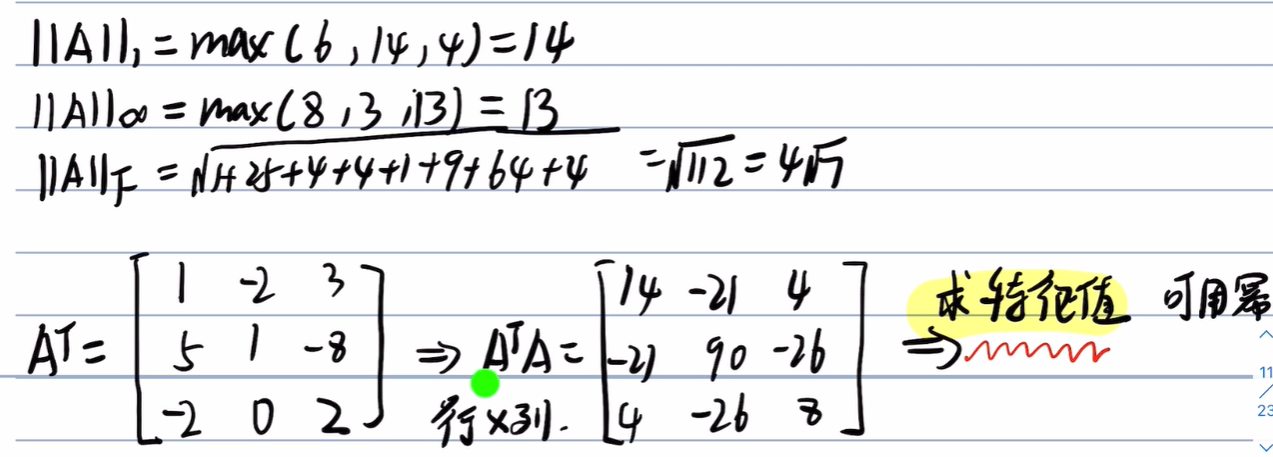 ||A||₁ = max(6, 14, 4) = 14
||A||∞ = max(8, 3, 13) = 13
||A||F = √(1+25+4+4+1+9+64+4) = √112 = 4√7
Aᵀ = [1 -2 3; 5 1 -8; -2 0 2] ⇒ AᵀA = [14 -21 4; -21 90 -26; 4 -26 8] ⇒ 求特征值 可用幂
行×列.
11
23